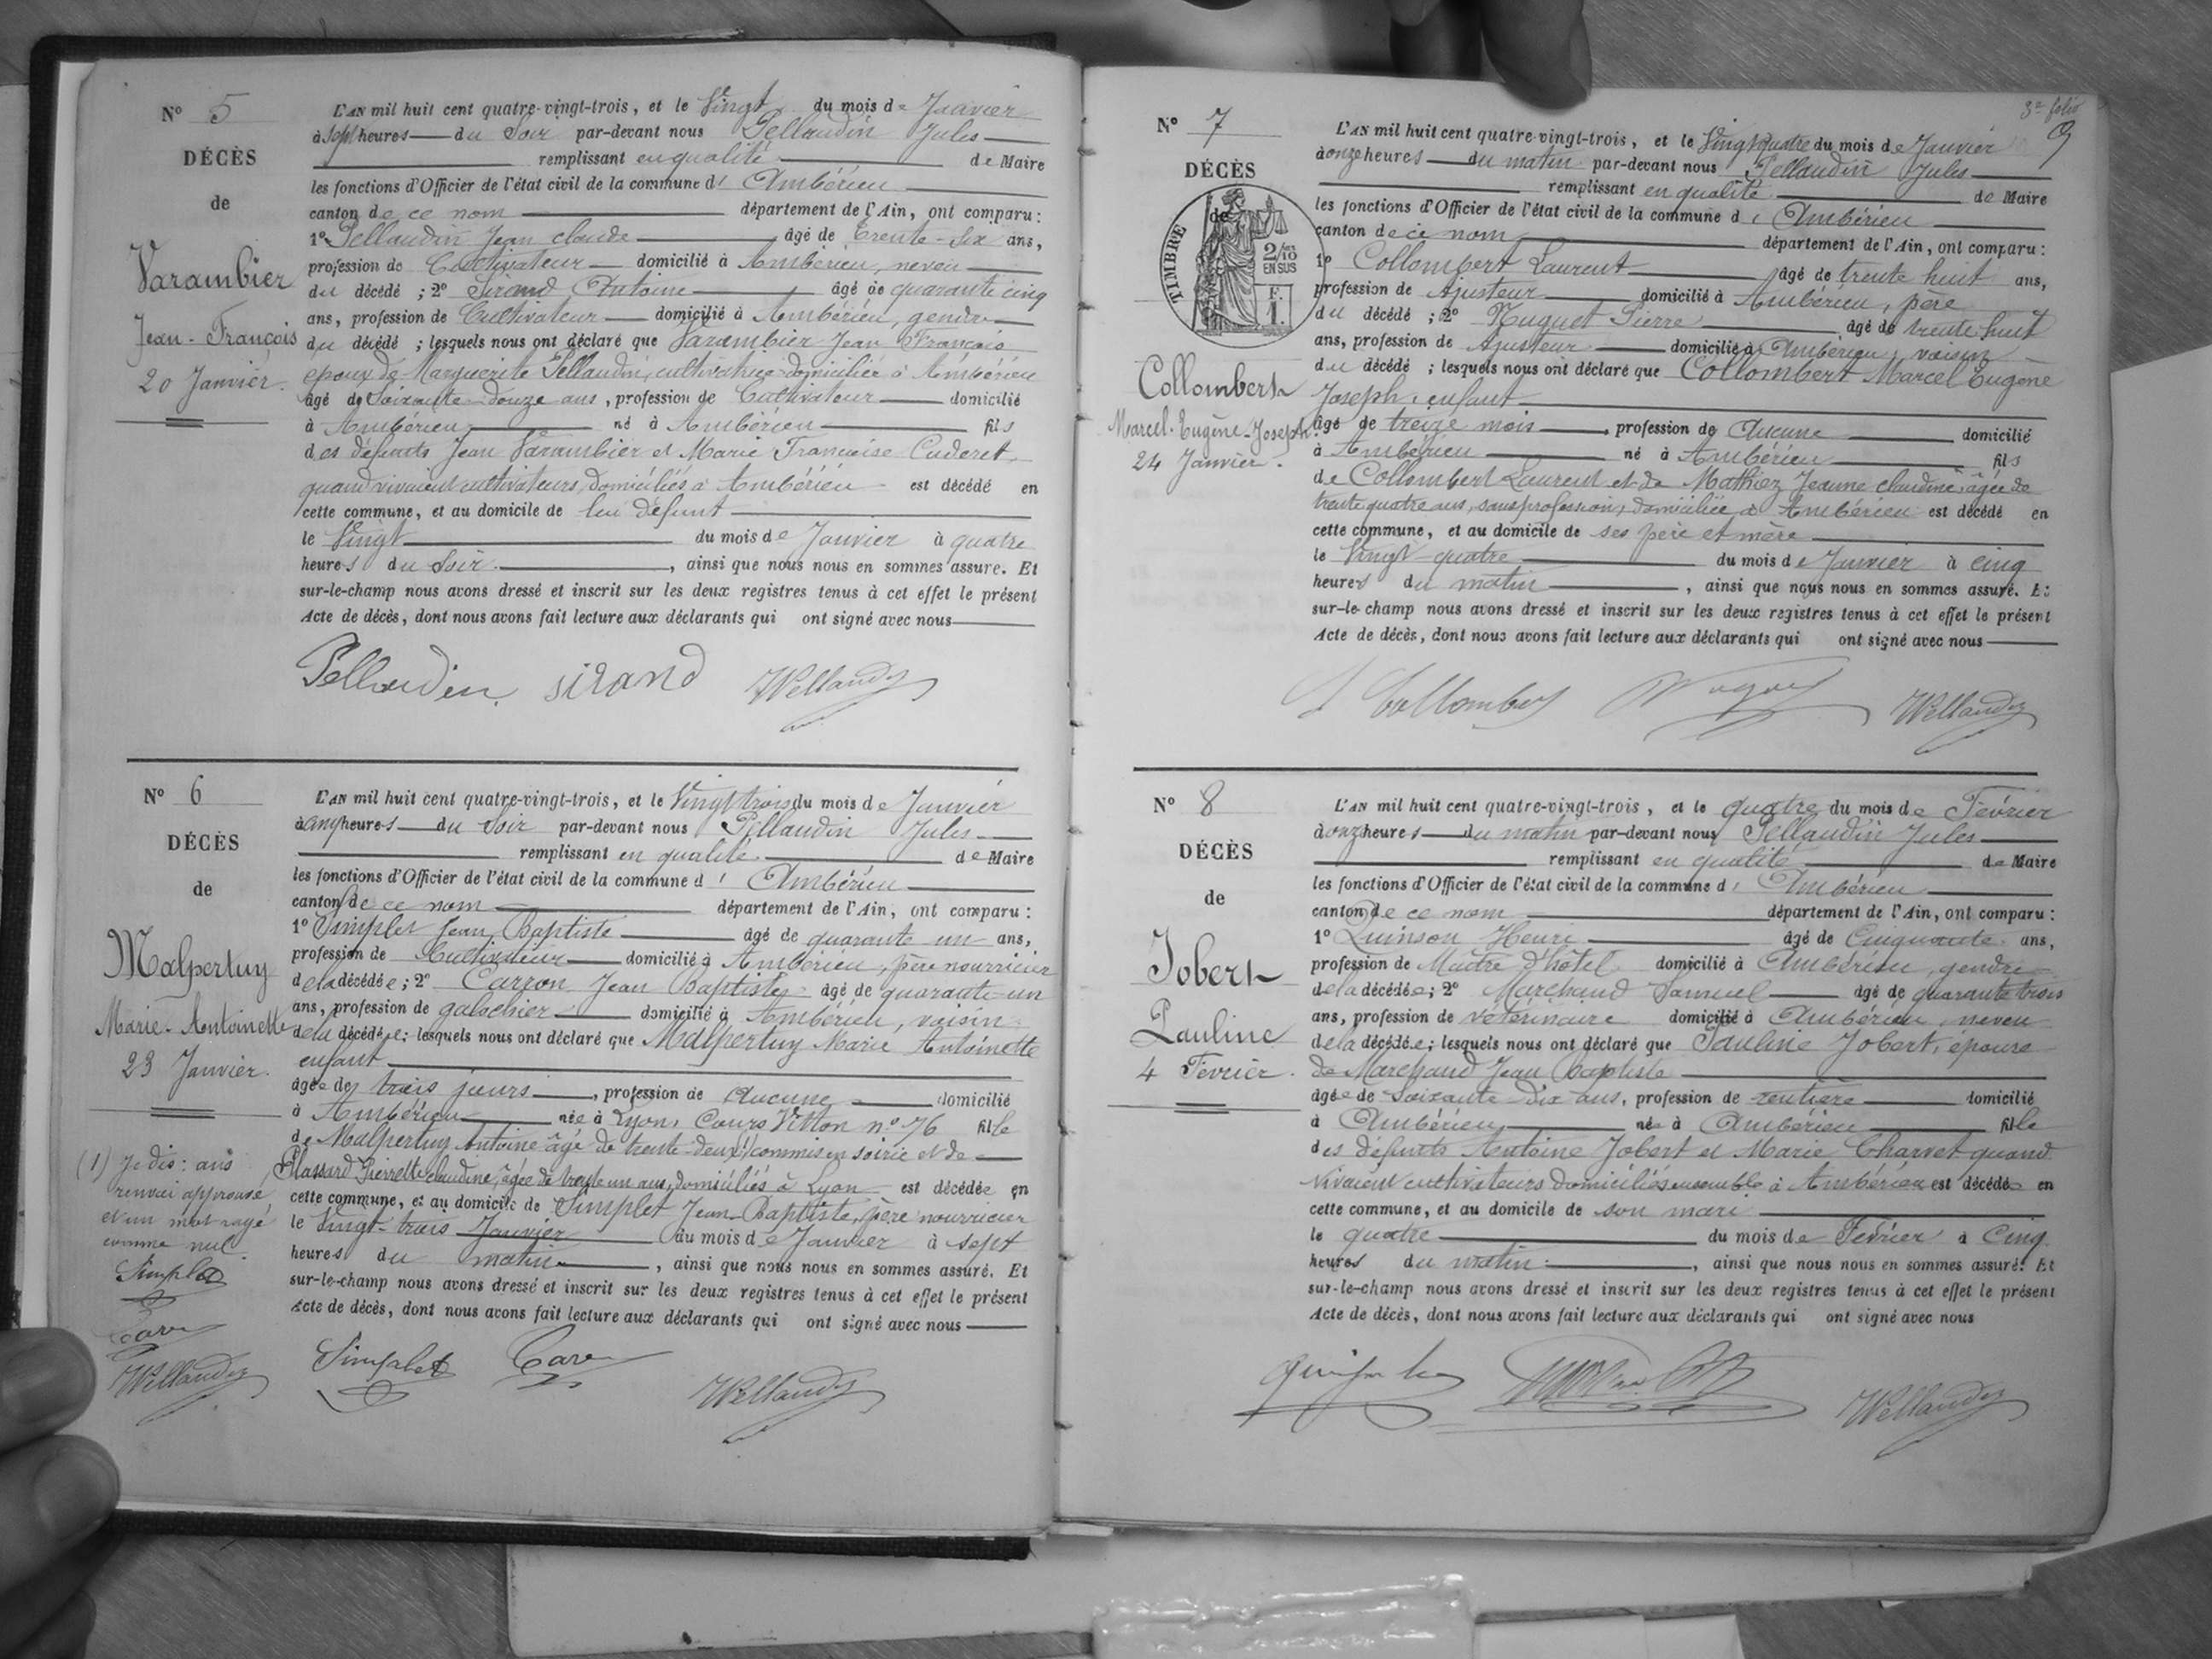 N° 5
DÉCÈS
de
Varambier
Jean-François
20 Janvier.
L'AN mil huit cent quatre-vingt-trois, et le Vingt du mois de Janvier
à sept heures du Soir par-devant nous Pellaudin Jules
remplissant en qualité de Maire
les fonctions d'Officier de l'état civil de la commune d' Ambérieu
canton de ce nom département de l'Ain, ont comparu :
1° Pellaudin Jean claude âgé de trente-six ans,
profession de Cultivateur domicilié à Ambérieu, neveu
du décédé ; 2° Sirand Antoine âgé de quarante cinq
ans, profession de Cultivateur domicilié à Ambérieu, gendre
du décédé ; lesquels nous ont déclaré que Varambier Jean François
époux de Marguerite Pellaudin, cultivatrice domiciliée à Ambérieu
âgé de Soixante-douze ans, profession de Cultivateur domicilié
à Ambérieu né à Ambérieu fils
des défunts Jean Varambier et Marie Françoise Cuderet,
quand vivaient cultivateurs, domiciliés à Ambérieu est décédé en
cette commune, et au domicile de lui défunt
le Vingt du mois de Janvier à quatre
heures du Soir, ainsi que nous nous en sommes assuré. Et
sur-le-champ nous avons dressé et inscrit sur les deux registres tenus à cet effet le présent
Acte de décès, dont nous avons fait lecture aux déclarants qui ont signé avec nous
Pellaudin sirand
N° 6
DÉCÈS
de
Malpertuy
Marie-Antoinette
23 Janvier.
L'AN mil huit cent quatre-vingt-trois, et le Vingt trois du mois de Janvier
à cinq heures du Soir par-devant nous Pellaudin Jules
remplissant en qualité de Maire
les fonctions d'Officier de l'état civil de la commune d' Ambérieu
canton de ce nom département de l'Ain, ont comparu :
1° Simplet Jean Baptiste âgé de quarante un ans,
profession de Cultivateur domicilié à Ambérieu, père nourricier
de la décédée ; 2° Carron Jean Baptiste âgé de quarante-un
ans, profession de galochier domicilié à Ambérieu, voisin
de la décédée ; lesquels nous ont déclaré que Malpertuy Marie Antoinette
enfant
âgée de trois jours, profession de Aucune domicilié
à Ambérieu née à Lyon, Cours Vitton n° 76 fille
de Malpertuy Antoine âgé de trente-deux (1) commis en soirie et de
Plassard Pierrette claudine, âgée de trente un ans, domiciliés à Lyon est décédée en
cette commune, et au domicile de Simplet Jean-Baptiste, père nourricier
le Vingt-trois Janvier du mois de Janvier à sept
heures du matin, ainsi que nous nous en sommes assuré. Et
sur-le-champ nous avons dressé et inscrit sur les deux registres tenus à cet effet le présent
Acte de décès, dont nous avons fait lecture aux déclarants qui ont signé avec nous
(1) Je dis : ans
renvoi approuvé
et un mot rayé
comme nul.
Simplet
Simplet
3e folio
N° 7
DÉCÈS
de
TIMBRE
2/10
EN SUS
F.
1.
Collombert
Marcel-Eugène-Joseph.
24 Janvier.
L'AN mil huit cent quatre-vingt-trois, et le Vingt quatre du mois de Janvier
à onze heures du matin par-devant nous Pellaudin Jules
remplissant en qualité de Maire
les fonctions d'Officier de l'état civil de la commune d' Ambérieu
canton de ce nom département de l'Ain, ont comparu :
1° Collombert Laurent âgé de trente huit ans,
profession de Ajusteur domicilié à Ambérieu, père
du décédé ; 2° Nuguet Pierre âgé de trente huit
ans, profession de Ajusteur domicilié à Ambérieu, voisin
du décédé ; lesquels nous ont déclaré que Collombert Marcel Eugène
Joseph, enfant
âgé de treize mois, profession de Aucune domicilié
à Ambérieu né à Ambérieu fils
de Collombert Laurent et de Mathiez Jeanne claudine, âgée de
trente quatre ans, sans profession, domiciliée à Ambérieu est décédé en
cette commune, et au domicile de ses père et mère
le Vingt-quatre du mois de Janvier à cinq
heures du matin, ainsi que nous nous en sommes assuré. Et
sur-le-champ nous avons dressé et inscrit sur les deux registres tenus à cet effet le présent
Acte de décès, dont nous avons fait lecture aux déclarants qui ont signé avec nous
N° 8
DÉCÈS
de
Jobert
Pauline
4 Février.
L'AN mil huit cent quatre-vingt-trois, et le quatre du mois de Février
à onze heures du matin par-devant nous Pellaudin Jules
remplissant en qualité de Maire
les fonctions d'Officier de l'état civil de la commune d' Ambérieu
canton de ce nom département de l'Ain, ont comparu :
1° Quinson Henri âgé de Cinquante ans,
profession de Maître d'hôtel domicilié à Ambérieu, gendre
de la décédée ; 2° Marchand Samuel âgé de quarante trois
ans, profession de vétérinaire domicilié à Ambérieu, neveu
de la décédée ; lesquels nous ont déclaré que Pauline Jobert, épouse
de Marchand Jean Baptiste
âgée de Soixante-Dix ans, profession de rentière domicilié
à Ambérieu née à Ambérieu fille
des défunts Antoine Jobert et Marie Charvet quand
vivaient cultivateurs domiciliés ensemble à Ambérieu est décédée en
cette commune, et au domicile de son mari
le quatre du mois de Février à Cinq
heures du matin, ainsi que nous nous en sommes assuré. Et
sur-le-champ nous avons dressé et inscrit sur les deux registres tenus à cet effet le présent
Acte de décès, dont nous avons fait lecture aux déclarants qui ont signé avec nous